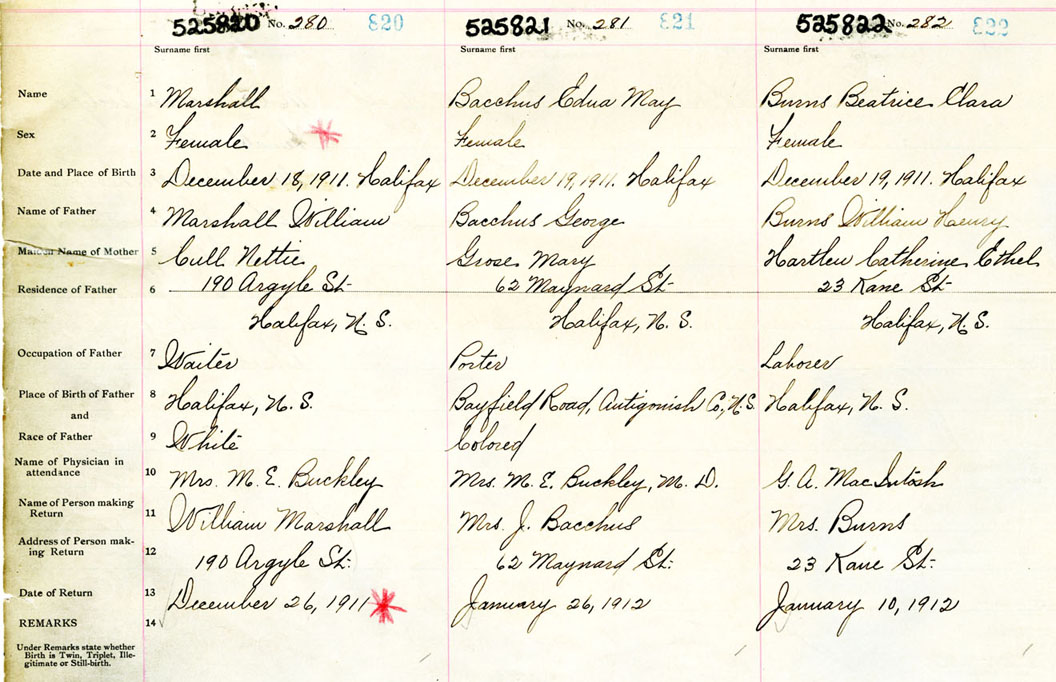 525820 No. 280 820 525821 No. 281 821 525822 No. 282 822
Surname first Surname first Surname first
Name 1 Marshall Bacchus Edna May Burns Beatrice Clara
Sex 2 Female Female Female
Date and Place of Birth 3 December 18, 1911. Halifax December 19, 1911. Halifax December 19, 1911. Halifax
Name of Father 4 Marshall William Bacchus George Burns William Henry
Maiden Name of Mother 5 Cull Nettie Grose Mary Hartlen Catherine Ethel
Residence of Father 6 190 Argyle St. 62 Maynard St. 23 Kane St.
Halifax, N. S. Halifax, N. S. Halifax, N. S.
Occupation of Father 7 Waiter Porter Laborer
Place of Birth of Father 8 Halifax, N. S. Bayfield Road, Antigonish Co., N. S. Halifax, N. S.
and
Race of Father 9 White Colored
Name of Physician in
attendance 10 Mrs. M. E. Buckley Mrs. M. E. Buckley, M. D. G. A. MacIntosh
Name of Person making
Return 11 William Marshall Mrs. J. Bacchus Mrs. Burns
Address of Person mak-
ing Return 12 190 Argyle St. 62 Maynard St. 23 Kane St.
Date of Return 13 December 26, 1911 January 26, 1912 January 10, 1912
REMARKS 14
Under Remarks state whether
Birth is Twin, Triplet, Ille-
gitimate or Still-birth.